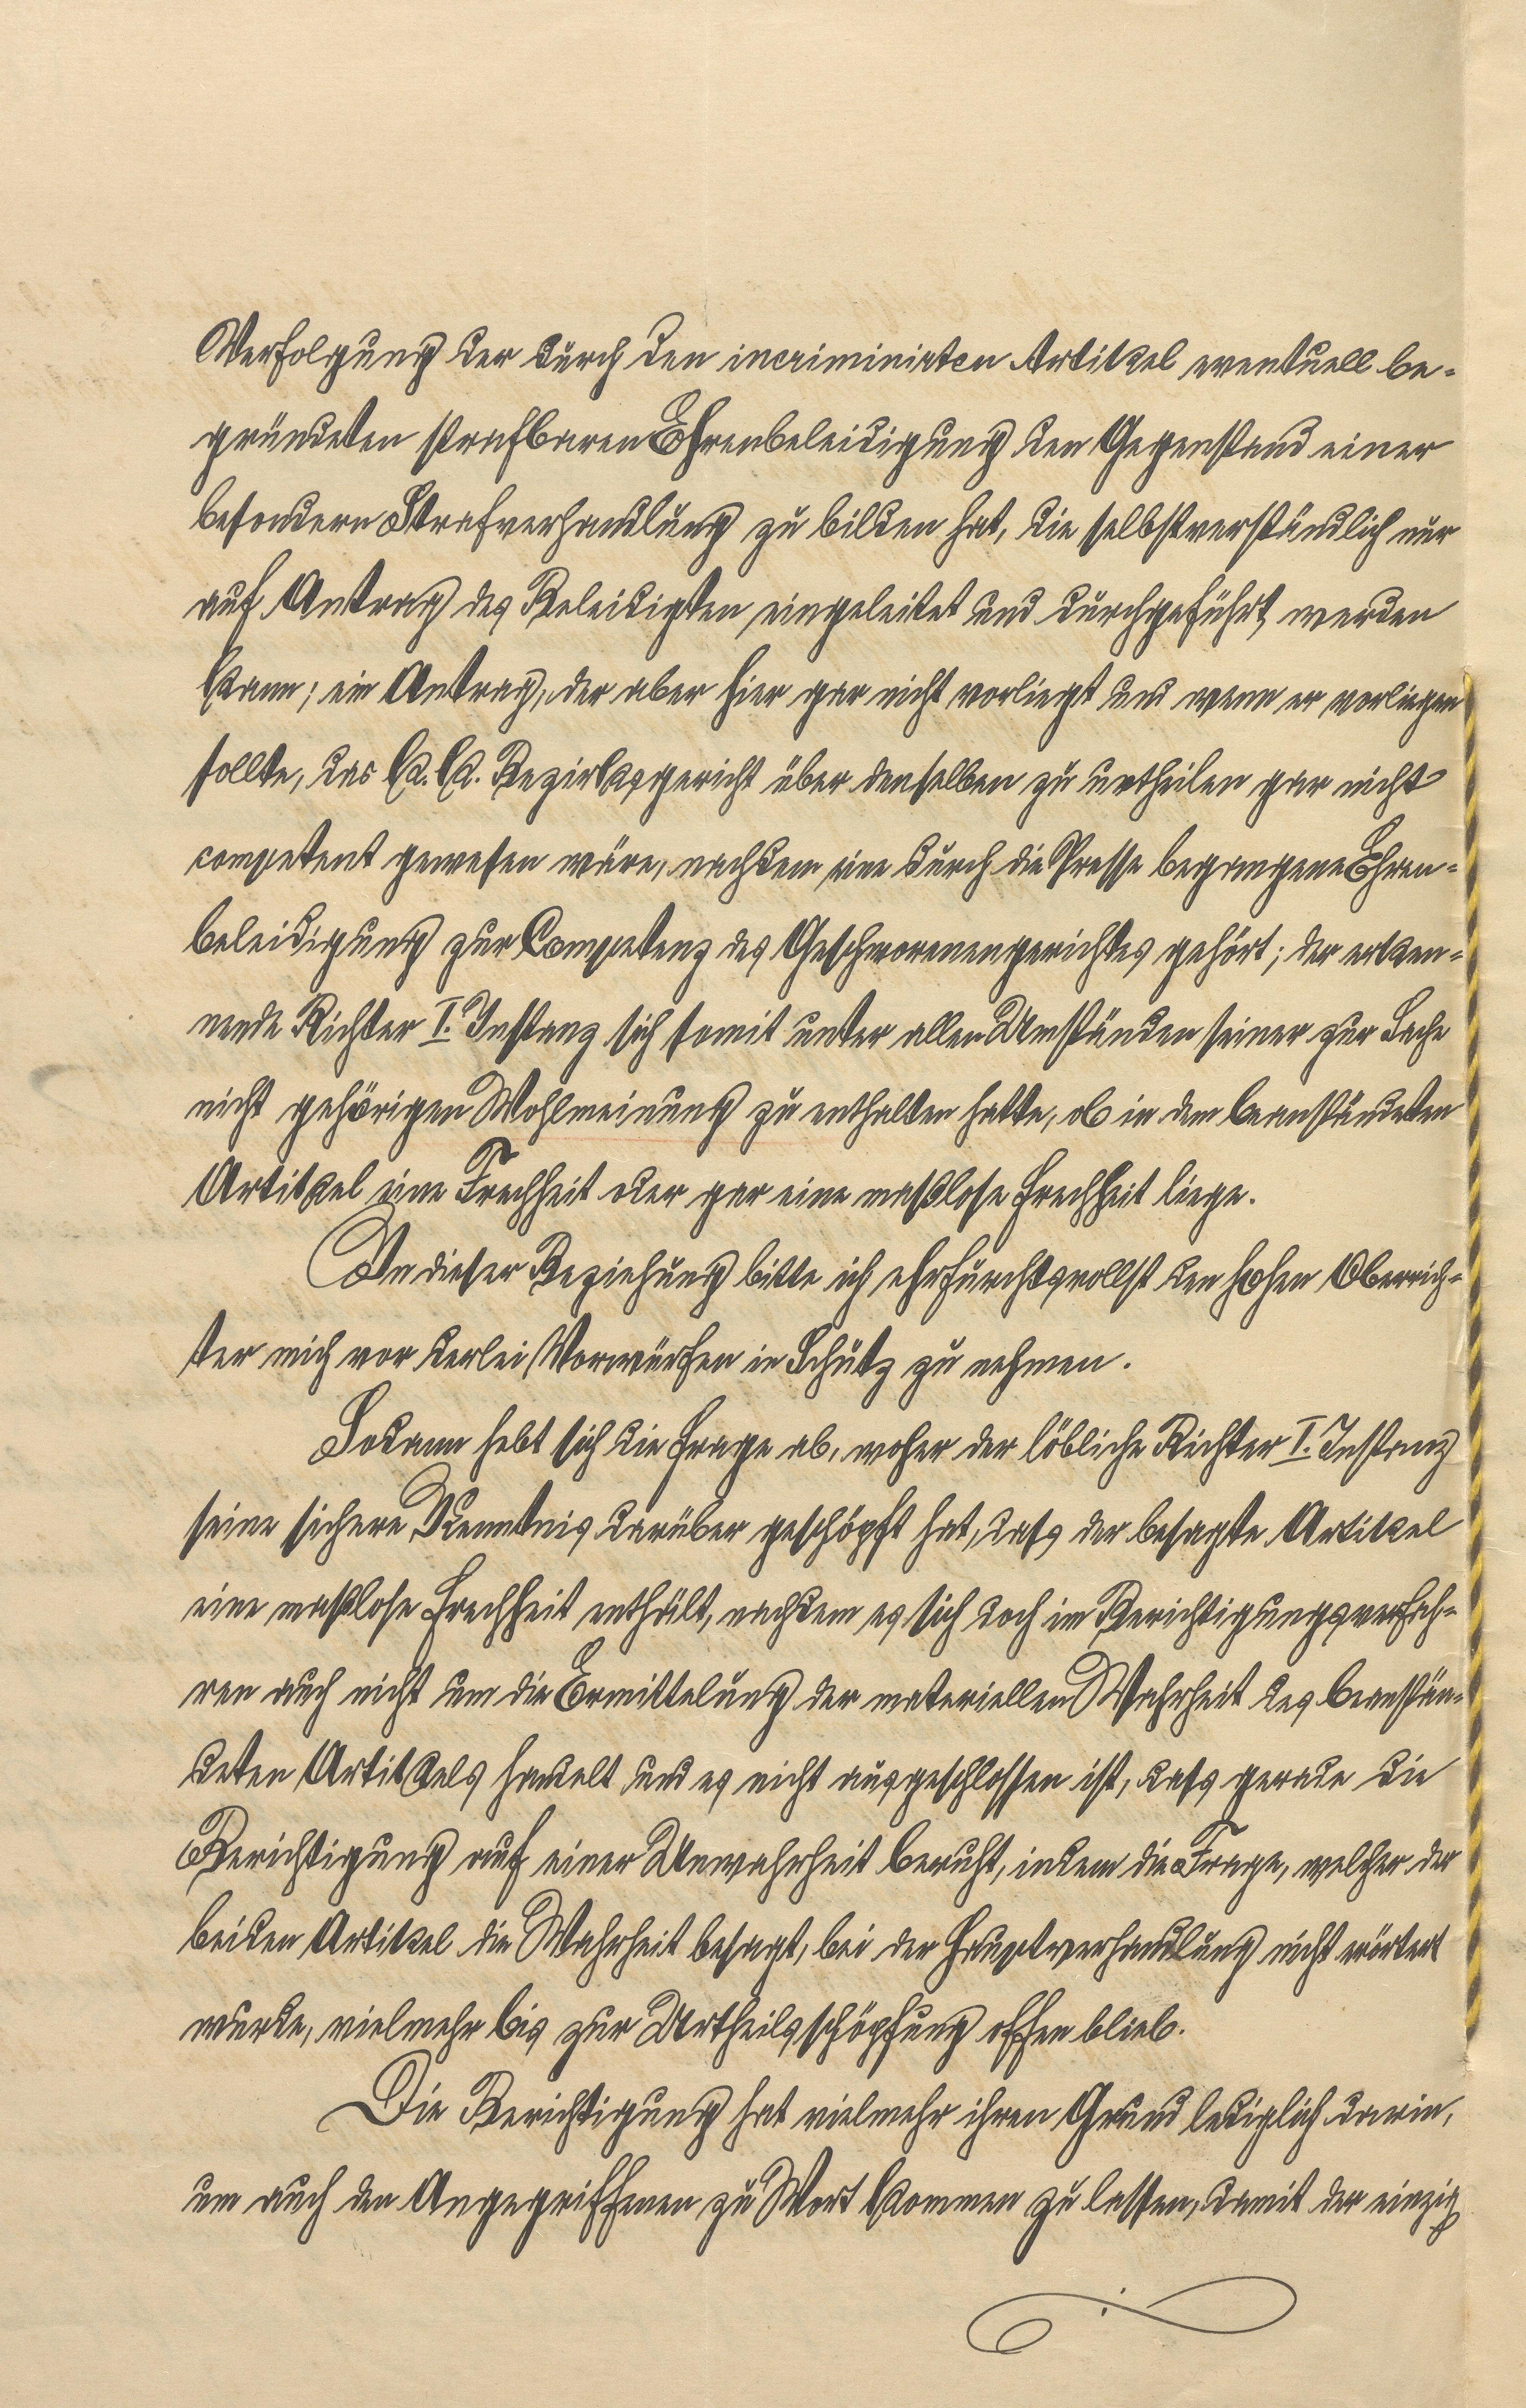 Verfolgung der durch den incriminirten Artikel eventuell be-
gründeten strafbaren Ehrenbeleidigung den Gegenstand einer
besondern Strafverhandlung zu bilden hat, die selbstverständlich nur
auf Antrag des Beleidigten eingeleitet und durchgeführt werden
kann; ein Antrag, der aber hier gar nicht vorliegt und wenn er vorliegen
sollte, das k. k. Bezirksgericht über denselben zu urtheilen gar nicht
competent gewesen wäre, nachdem eine durch die Presse begangene Ehren-
beleidigung zur Competenz des Geschworenengerichtes gehört; der erken-
nende Richter I. Instanz sich somit unter allen Umständen seiner zur Sache
nicht gehörigen Wohlmeinung zu enthalten hatte, ob in dem beanständeten
Artikel eine Frechheit oder gar eine maßlose Frechheit liege.
In dieser Beziehung bitte ich ehrfurchtsvollst den hohen Oberrich-
ter mich vor derlei Vorwürfen in Schutz zu nehmen.
Sodann hebt sich die Frage ab, woher der löbliche Richter I. Instanz
seine sichere Kenntnis darüber geschöpft hat, dass der besagte Artikel
eine maßlose Frechheit enthält, nachdem es sich doch im Berichtigungsverfah-
ren auch nicht um die Ermittelung der materiellen Wahrheit des beanstän-
deten Artikels handelt und es nicht ausgeschlossen ist, dass gerade die
Berichtigung auf einer Unwahrheit beruht, indem die Frage, welcher der
beiden Artikel die Wahrheit besagt, bei der Hauptverhandlung nicht erörtert
wurde, vielmehr bis zur Urtheilsschöpfung offen blieb.
Die Berichtigung hat vielmehr ihren Grund lediglich darin,
um auch den Angegriffenen zu Wort kommen zu lassen, damit der einzig